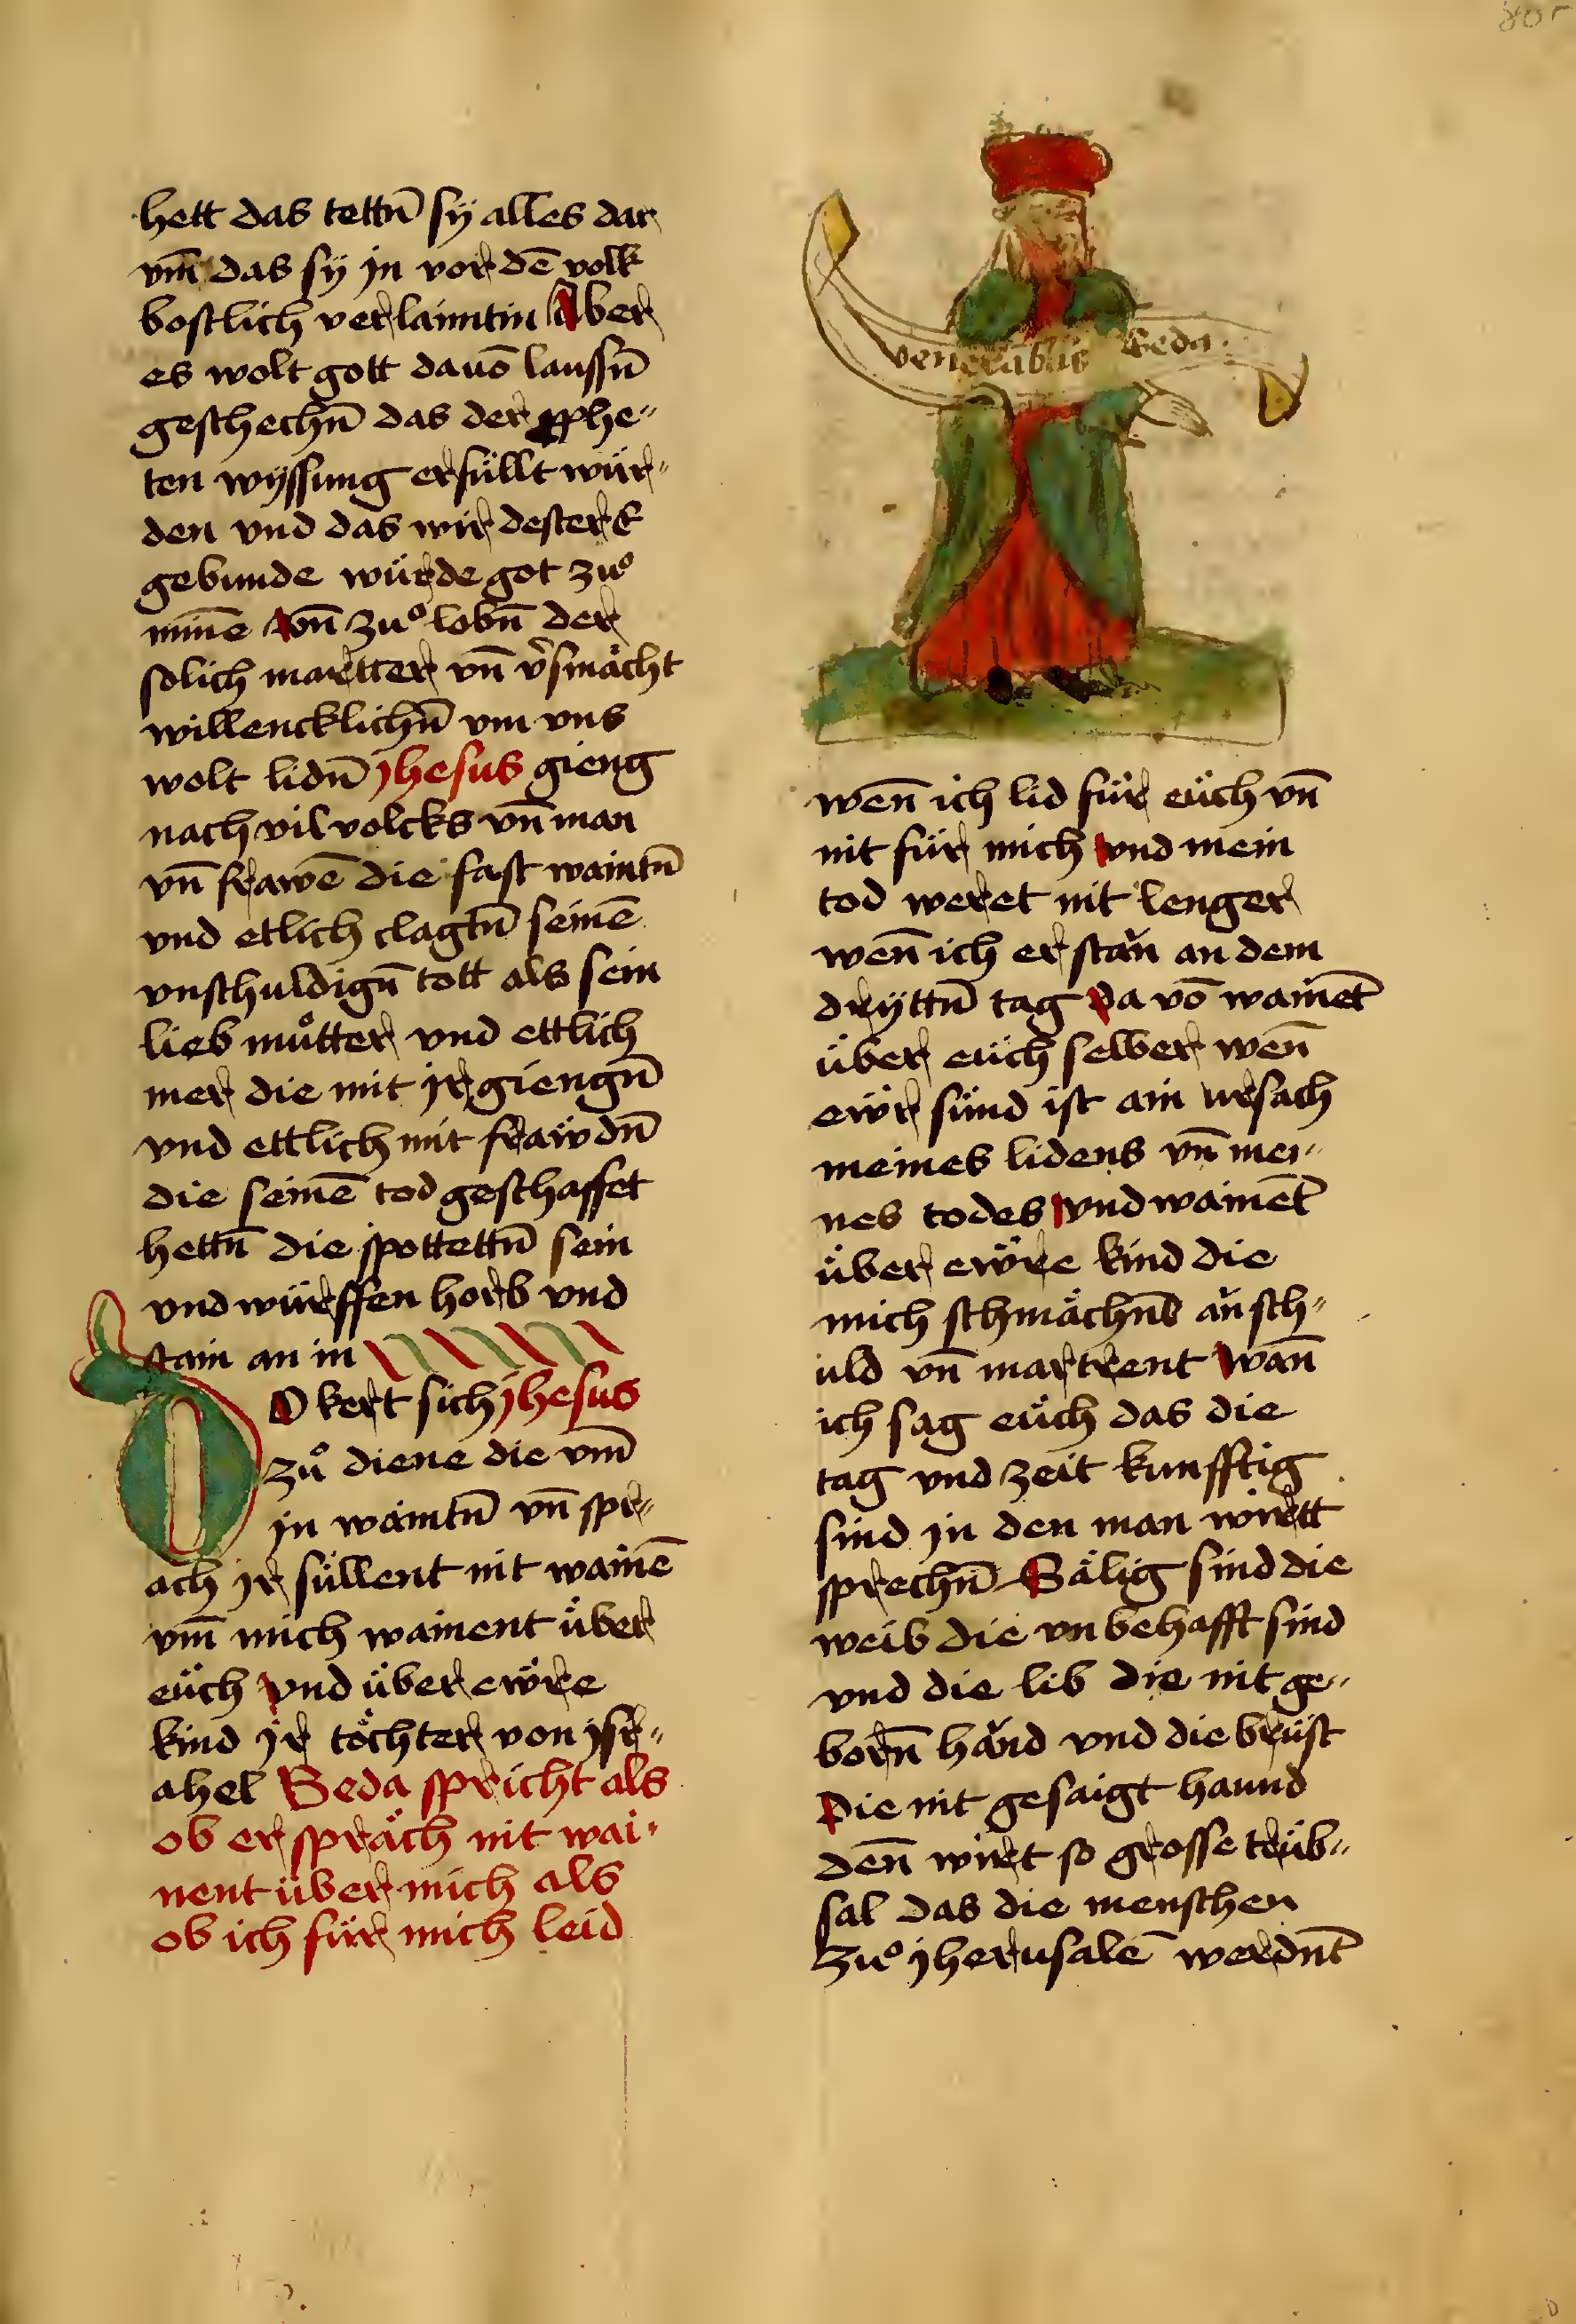 80r
hett das tettn̄ sÿ alles dar
vm̄ das sÿ jn vor dē volk
bostlich verlaimtin Aber
es wolt gott dauō laussn̄
geschechn̄ das der pphe„
ten wyssung erfüllt wür„
den vnd das wir dester E
gebunde würde got zuͦ
mine vn̄ zuͦ lobn̄ der
solich martter vn̄ v̄smächt
willencklichn̄ vm vns
wolt lidn̄ jhesus gieng
nach vil volcks vn̄ man
vn̄ frawē die fast waintn̄
vnd etlich clagtn̄ seinē
vnschuldign̄ tott als sein
lieb muͦtter vnd ettlich
mer die mit jr giengn̄
vnd ettlich mit fräwdn̄
die seinē tod geschaffet
hettn̄ die spottettn̄ sein
vnd würffen horb vnd
stain an in
DO kert sich jhesus
zuͦ diene die vm̄
jn waintn̄ vn̄ spr„
ach jr süllent nit wainē
vm̄ mich wainent über
eüch vnd über ewre
kind jr töchter von jsr„
ahel Beda spricht als
ob er spräch nit wai„
nent über mich als
ob ich für mich leid
venerabilis Beda
wen̄ ich lid für eüch vn̄
nit für mich vnd mein
tod weret nit lenger
wen̄ ich erstän an dem
dryttn̄ tag Da vō wainēt
über eüch selber wen̄
ewr sünd ist ain vrsach
meines lidens vn̄ mei„
nes todes vnd wainēt
über ewre kind die
mich schmächnd än sch„
uld vn̄ martrent wan̄
ich sag eüch das die
tag vnd zeit kunfftig
sind jn den man wirtt
sprechn̄ Sälig sind die
weib die vnbehafft sind
vnd die lib die nit ge„
born̄ händ vnd die brüst
Die nit gesaigt haund
den̄ wirt so grosse trüb„
sal das die menschen
zuͦ jherusalē werdnt̄